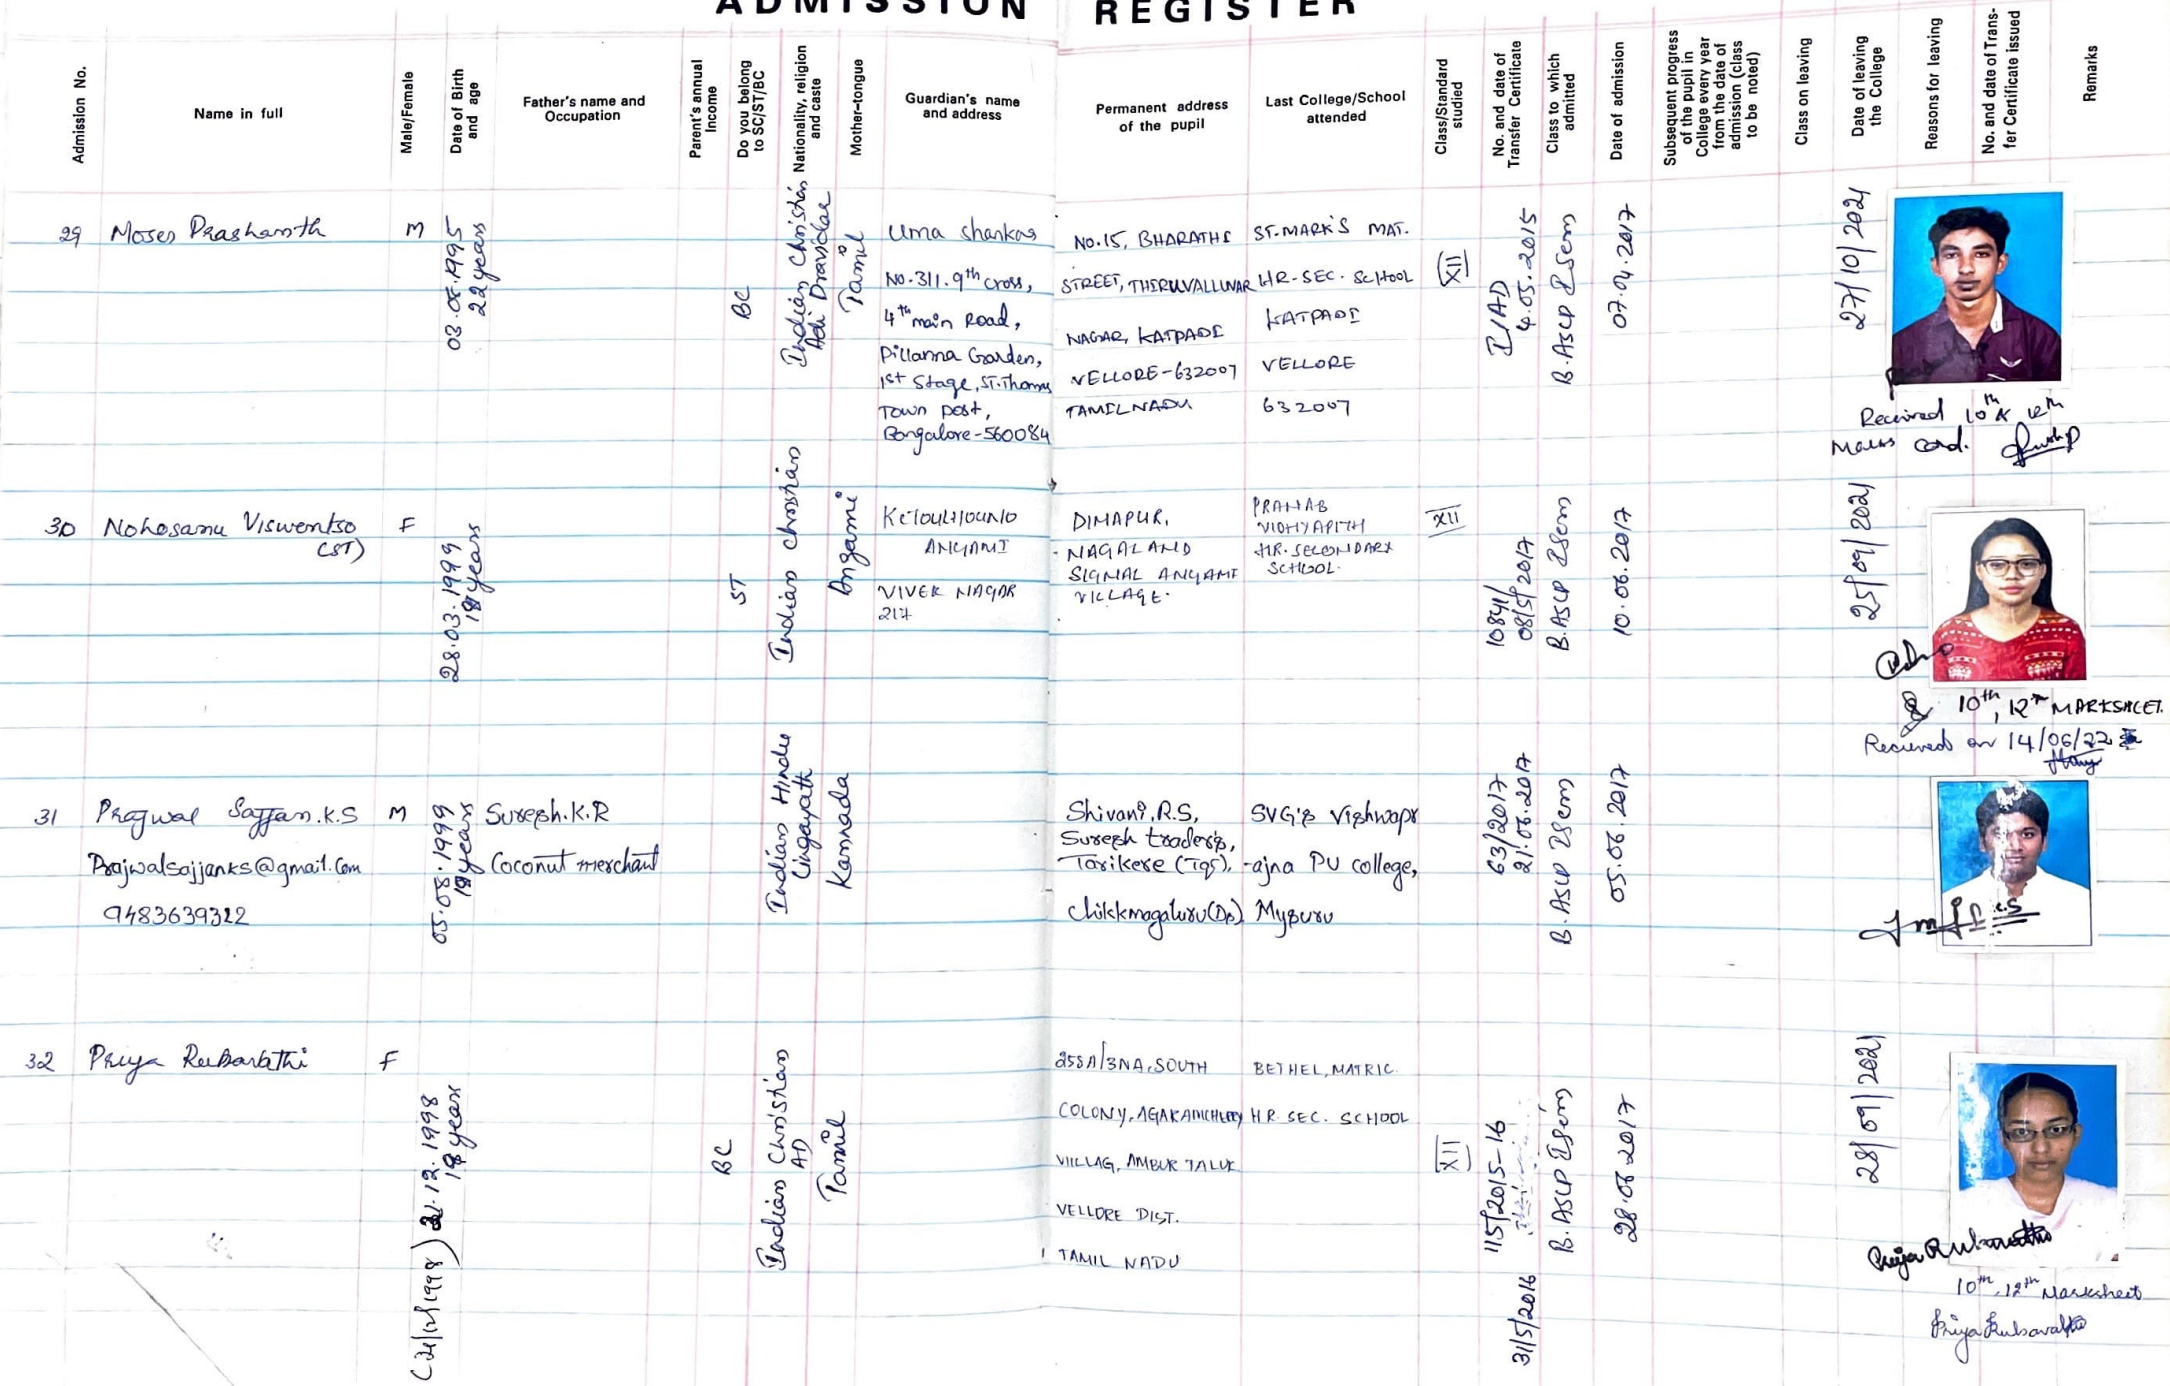 ADMISSION REGISTER
Admission No.
Name in full
Male/Female
Date of Birth
and age
Father's name and
Occupation
Parent's annual
Income
Do you belong
to SC/ST/BC
Nationality, religion
and caste
Mother-tongue
Guardian's name
and address
Permanent address
of the pupil
Last College/School
attended
Class/Standard
studied
No. and date of
Transfer Certificate
Class to which
admitted
Date of admission
Subsequent progress
of the pupil in
College every year
from the date of
admission (class
to be noted)
Class on leaving
Date of leaving
the College
Reasons for leaving
No. and date of Trans-
fer Certificate issued
Remarks
29
Moses Prashanth
M
22 years
BC
Indian Christian
Adi Dravidar
Tamil
Uma Shankar
No.311.9th cross,
4th main Road,
Pillanna Garden,
1st Stage, ST.Thomas
Town post,
Bangalore-560084
NO.15, BHARATHI
STREET, THIRUVALLUVAR
NAGAR, KATPADI
VELLORE-632007
TAMILNADU
ST.MARK'S MAT.
HR-SEC. SCHOOL
KATPADI
VELLORE
632007
(XII)
4.05.2015
B.ASLP
07.04.2017
27/10/2021
Received 10th & 12th
Marks card.
30
Nohosanu Viswentso
(ST)
F
28.03.1999
18 years
ST
Indian Christian
Angami
ANGAMI
VIVEK NAGAR
217
DIMAPUR,
NAGALAND
SIGNAL ANGAMI
VILLAGE.
PRANAB
VIDHYAPITH
HR.SECONDARY
SCHOOL.
XII
10841/
08/5/2017
B.ASLP
10.06.2017
25/09/2021
10th, 12th MARKSHEET.
Recieved on 14/06/22
31
Prajwal Sajjan.K.S
Prajwalsajjanks@gmail.com
9483639322
M
05.08.1999
18 years
Suresh.K.R
Coconut merchant
Indian Hindu
Lingayath
Kannada
Shivani.R.S,
Suresh traders,
Tarikere (Tq),
Chikkmagaluru(Ds)
SVG's Vishwapr
-ajna PU college,
Mysuru
63/2017
21.06.2017
B.ASLP
05.06.2017
K.S
32
Priya Rubavathi
F
21.12.1998
18 years
BC
Indian Christian
AD
Tamil
COLONY, AGARAMCHERY
VIILLAG, AMBUR TALUK
VELLORE DIST.
TAMIL NADU
BETHEL, MATRIC.
HR. SEC. SCHOOL
XII
115/2015-16
31/5/2016
B.ASLP
28.06.2017
28/09/2021
Priya Rubavathi
10th, 12th Marksheet
Priya Rubavathi